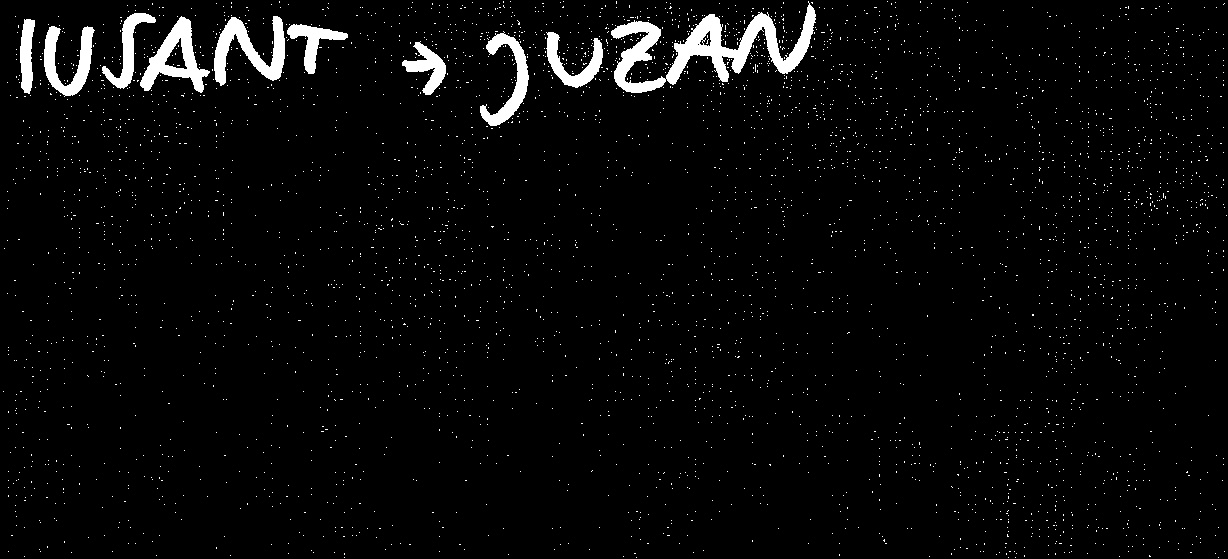 IUSANT → JUZAN